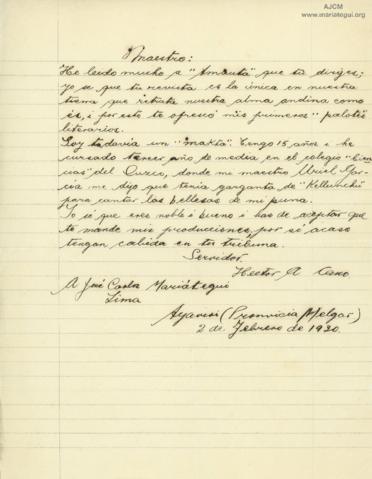 AJCM
www.mariategui.org
Maestro:
He leido mucho a "Amauta" que tú diriges;
Yo se que tu revista es la única en nuestra
tierra que retrata nuestra alma andina como
és, i por esto te ofresco mis primeros "palotes
literarios.
Soy todavia un "maktá". Tengo 15 años i he
cursado tercer año de media en el colegio "Cien
cias" del Cuzco, donde mi maestro Uriel Gar-
cia me dijo que tenia garganta de "Kellunchu"
para cantar las bellesas de mi puna.
Yo sé que eres noble i bueno i has de aceptar que
te mande mis producciones, por si acaso
tengan cabida en tu tribuna.
Servidor.
Hector A
A José Carlos Mariátegui
Lima
Ayaviri (Provincia Melgar)
2 de Febrero de 1930.